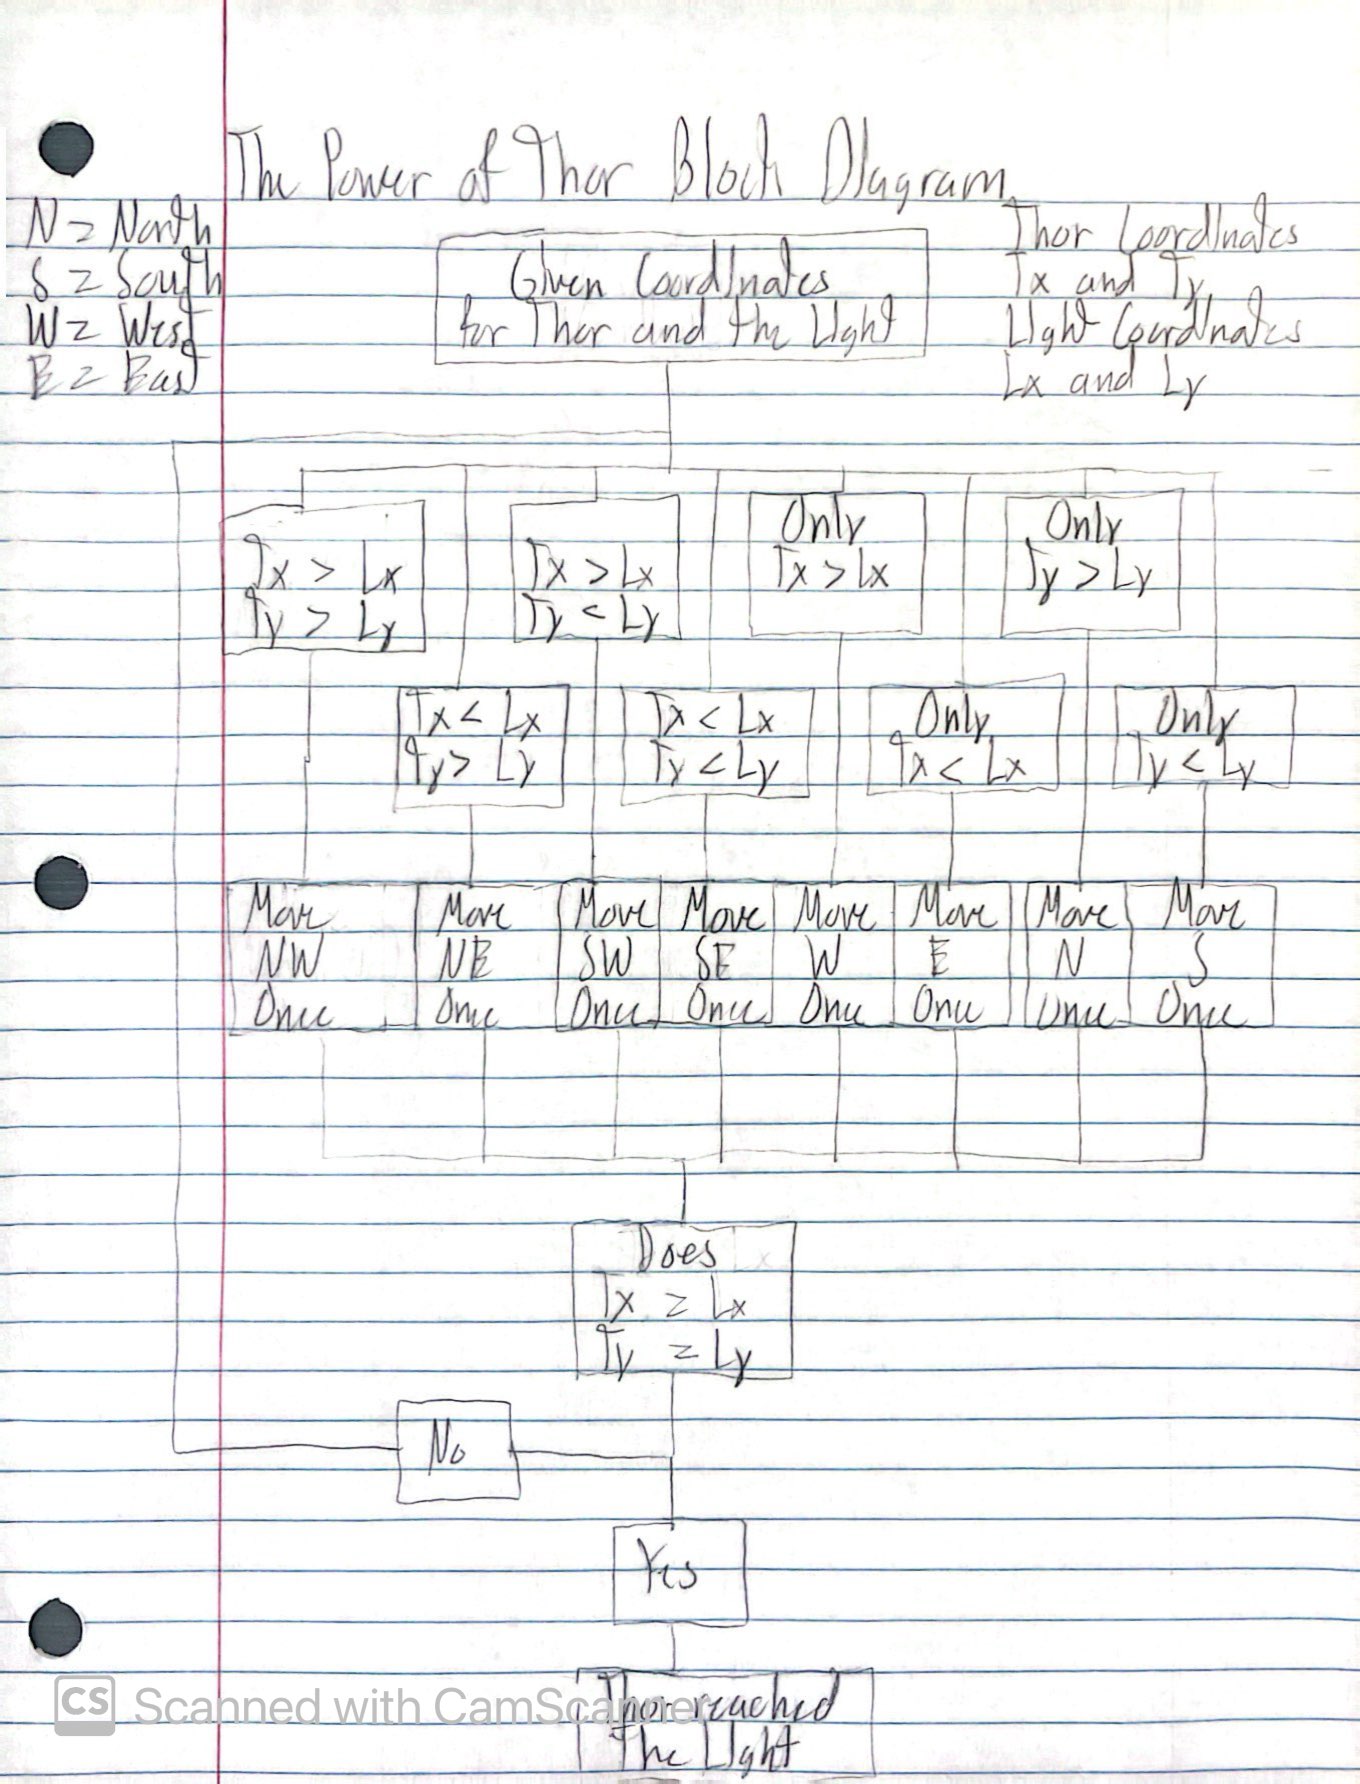 The Power of Thor Block Diagram
N = North
S = South
W = West
E = East
Given Coordinates
for Thor and the Light
Thor Coordinates
Tx and Ty
Light Coordinates
Lx and Ly
Tx > Lx
Ty > Ly
Tx > Lx
Ty < Ly
Only
Tx > Lx
Only
Ty > Ly
Tx < Lx
Ty > Ly
Tx < Lx
Ty < Ly
Only
Tx < Lx
Only
Ty < Ly
Move
NW
Once
Move
NE
Once
Move
SW
Once
Move
SE
Once
Move
W
Once
Move
E
Once
Move
N
Once
Move
S
Once
Does
Tx = Lx
Ty = Ly
No
Yes
Thor reached
The Light
CS Scanned with CamScanner